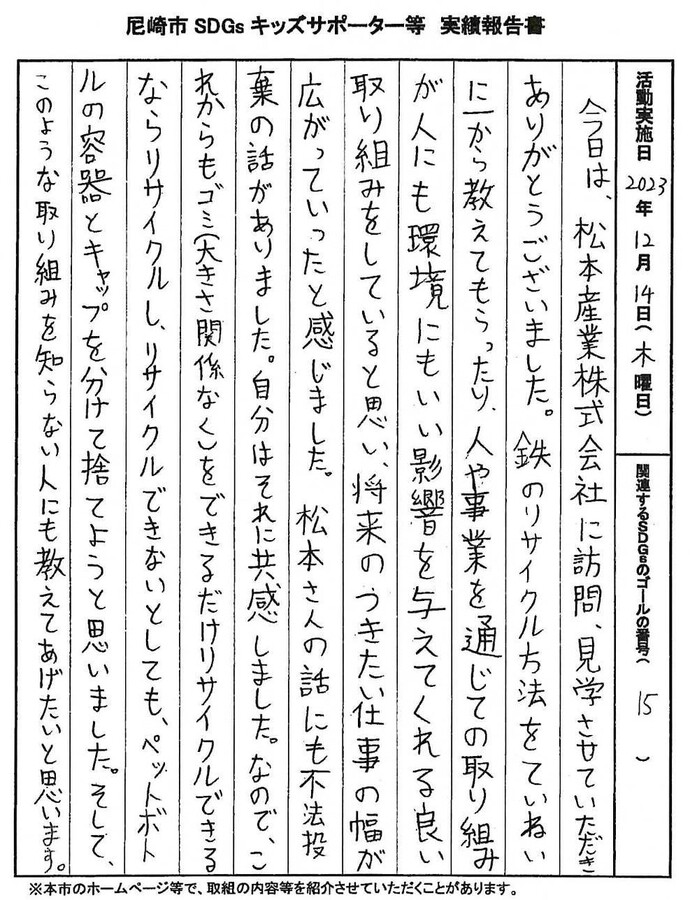 尼崎市 SDGs キッズサポーター等 実績報告書
活動実施日 2023年 12月 14日(木曜日)
関連するSDGsのゴールの番号( 15 )
今日は、松本産業株式会社に訪問、見学させていただき
ありがとうございました。鉄のリサイクル方法をていねい
に一から教えてもらったり、人や事業を通じての取り組み
が人にも環境にもいい影響を与えてくれる良い
取り組みをしていると思い、将来のつきたい仕事の幅が
広がっていったと感じました。松本さんの話にも不法投
棄の話がありました。自分はそれに共感しました。なので、こ
れからもゴミ(大きさ関係なく)をできるだけリサイクルできる
ならリサイクルし、リサイクルできないとしても、ペットボト
ルの容器とキャップを分けて捨てようと思いました。そして、
このような取り組みを知らない人にも教えてあげたいと思います。
※本市のホームページ等で、取組の内容等を紹介させていただくことがあります。